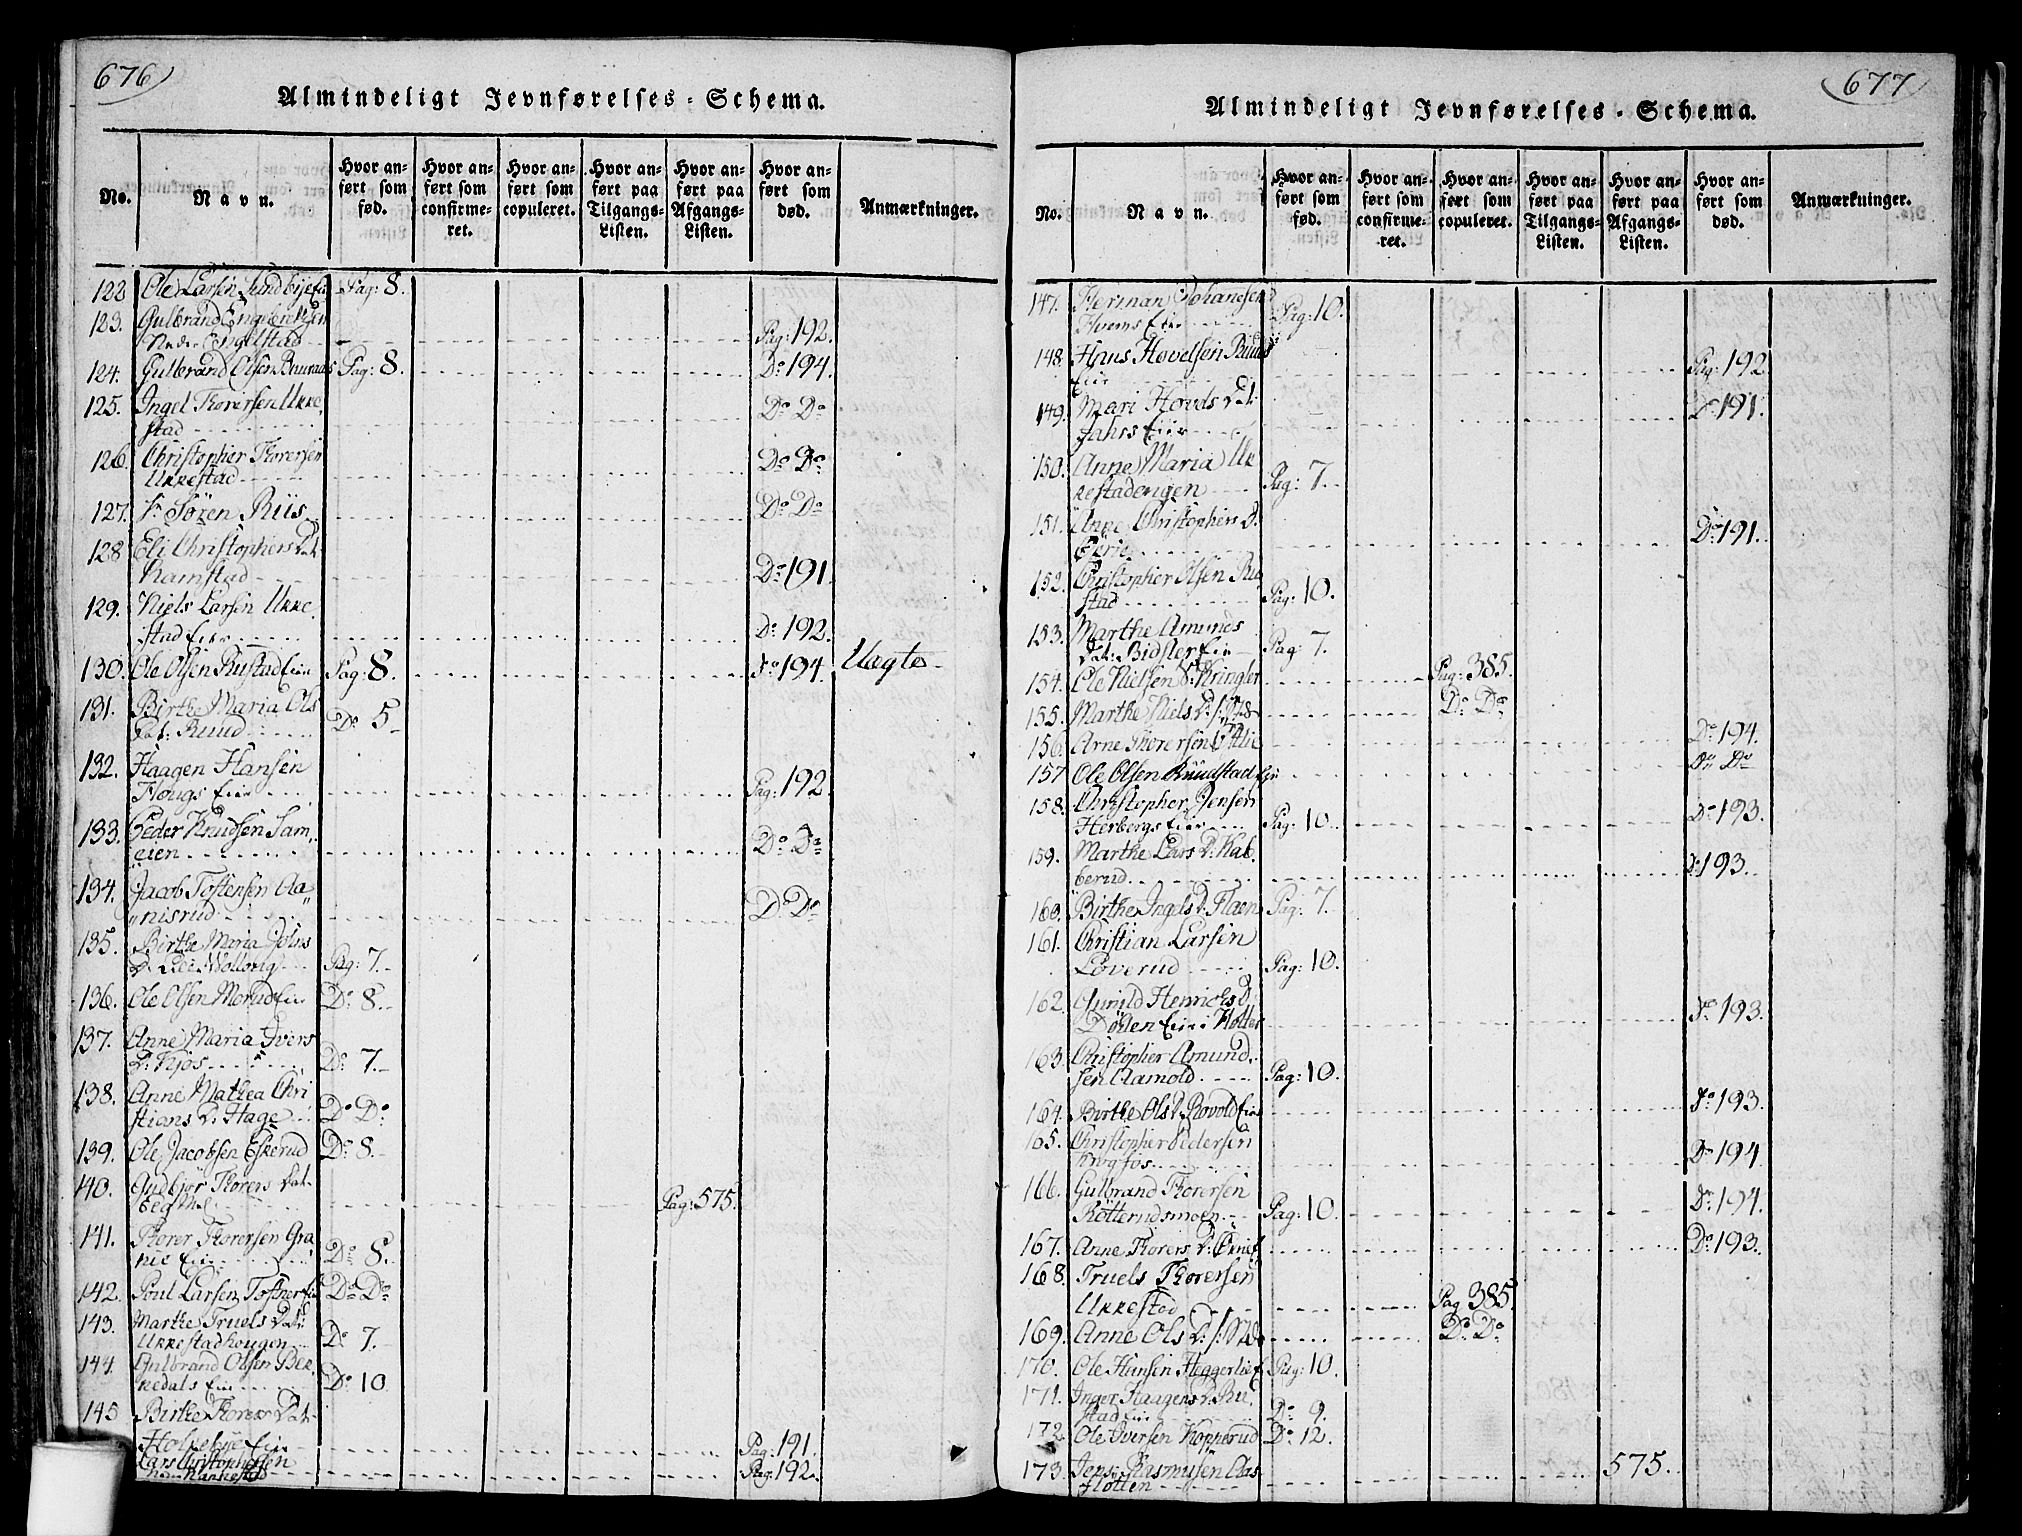 676
Almindeligt Jevnførelses-Schema.
No. Navn. Hvor anført som fød. Hvor anført som confirmeret. Hvor anført som copuleret. Hvor anført paa Tilgangs-Listen. Hvor anført paa Afgangs-Listen. Hvor anført som død. Anmærkninger.
122 Ole Larsen Pag: 8.
123. Gulbrand
Nedr. Engelstad Pag: 192.
124. Gulbrand Olsen Pag: 8. Do 194.
125. Ingel Thorersen Ukke,
stad Do Do
126. Christopher Thorersen
Ukkestad Do Do
127. Sören Riis Do Do
128 Eli Christophers Dat:
Ramstad Do 191.
129. Niels Larsen Ukke,
stad Eier Do 192.
130. Ole Olsen Rustad Eie Pag: 8. Do 194. Uægte
131. Birthe Maria Ols
Dat: Ruud Do 5
132. Haagen Hansen
Hougs Eier Pag: 192.
133. Peder Knudsen Sam,
eien Do Do
134. Jacob Tostensen Aa„
„nisrud Do Do
135. Birthe Maria Johns
D. Wollong Pag: 7.
136. Ole Olsen Morud Eie Do 8.
137. Anne Maria Ivers
D: Kjos Do 7.
138. Anne Mathea Chri
stians D. Hage Do Do:
139. Ole Jacobsen Eskerud Do 8.
140. Gudbjör Thorers Dat
Pag: 575.
141. Thorer Thorersen Gra
Eie Do 8.
142. Poul Larsen Do Do
143. Marthe Truels Dat:
Ukkestadhougen Do 7.
144. Gulbrand Olsen Bek
kedals Eie Do 10
145 Birthe Thorers Dat
Holsebye Eie Pag: 191.
Lars Christophersen
Pag: 192.
677
Almindeligt Jevnførelses-Schema.
No. Navn. Hvor anført som fød. Hvor anført som confirmeret. Hvor anført som copuleret. Hvor anført paa Tilgangs-Listen. Hvor anført paa Afgangs-Listen. Hvor anført som død. Anmærkninger.
147. Herman Johansen
Hvems Eier Pag: 10.
148. Hans Hovelsen Ruuds
Eier Pag: 192
149. Mari Hovels Dat:
Jahrs Eier Do 191.
150. Anne Maria Uk
kestadengen Pag: 7.
151. Anne Christophers D.
Do: 191.
152. Christopher Olsen Ru
stad Pag: 10.
153. Marthe Amunds
Dat: Bidsler Eie Pag: 7.
154. Ole Nielsen Kringler Pag: 385.
155. Marthe Niels D. Do Do
156. Arne Thorersen Do 194.
157 Ole Olsen Ruudstad Do Do
158. Christopher Jensen
Herbergs Eier Pag: 10. Do 193.
159. Marthe Lars D: Kab,
berud Do 193.
160. Birthe Ingels D. Flaen Pag: 7.
161. Christian Larsen
Löverud Pag: 10.
162. Henrichs D
Eie Do 193.
163. Christopher Amund
sen Aamold Pag: 10.
164. Birthe Ols D. Rovold Eie Do 193.
165. Christopher Pedersen
Krogfos Do 194.
166. Gulbrand Thorersen
Rötterudsmoen Pag: 10. Do 194.
167. Anne Thorers D: Do 193.
168. Truels Thorersen
Ukkestad Pag 385.
169. Anne Ols D: Do Do
170. Ole Hansen Heggerlie Pag: 10.
171. Inger Haagens D. Ru,
stad Eie Do 9.
172. Ole Iversen Kopperud Do 12.
173. Jens Rasmusen Aas
flotten 575.